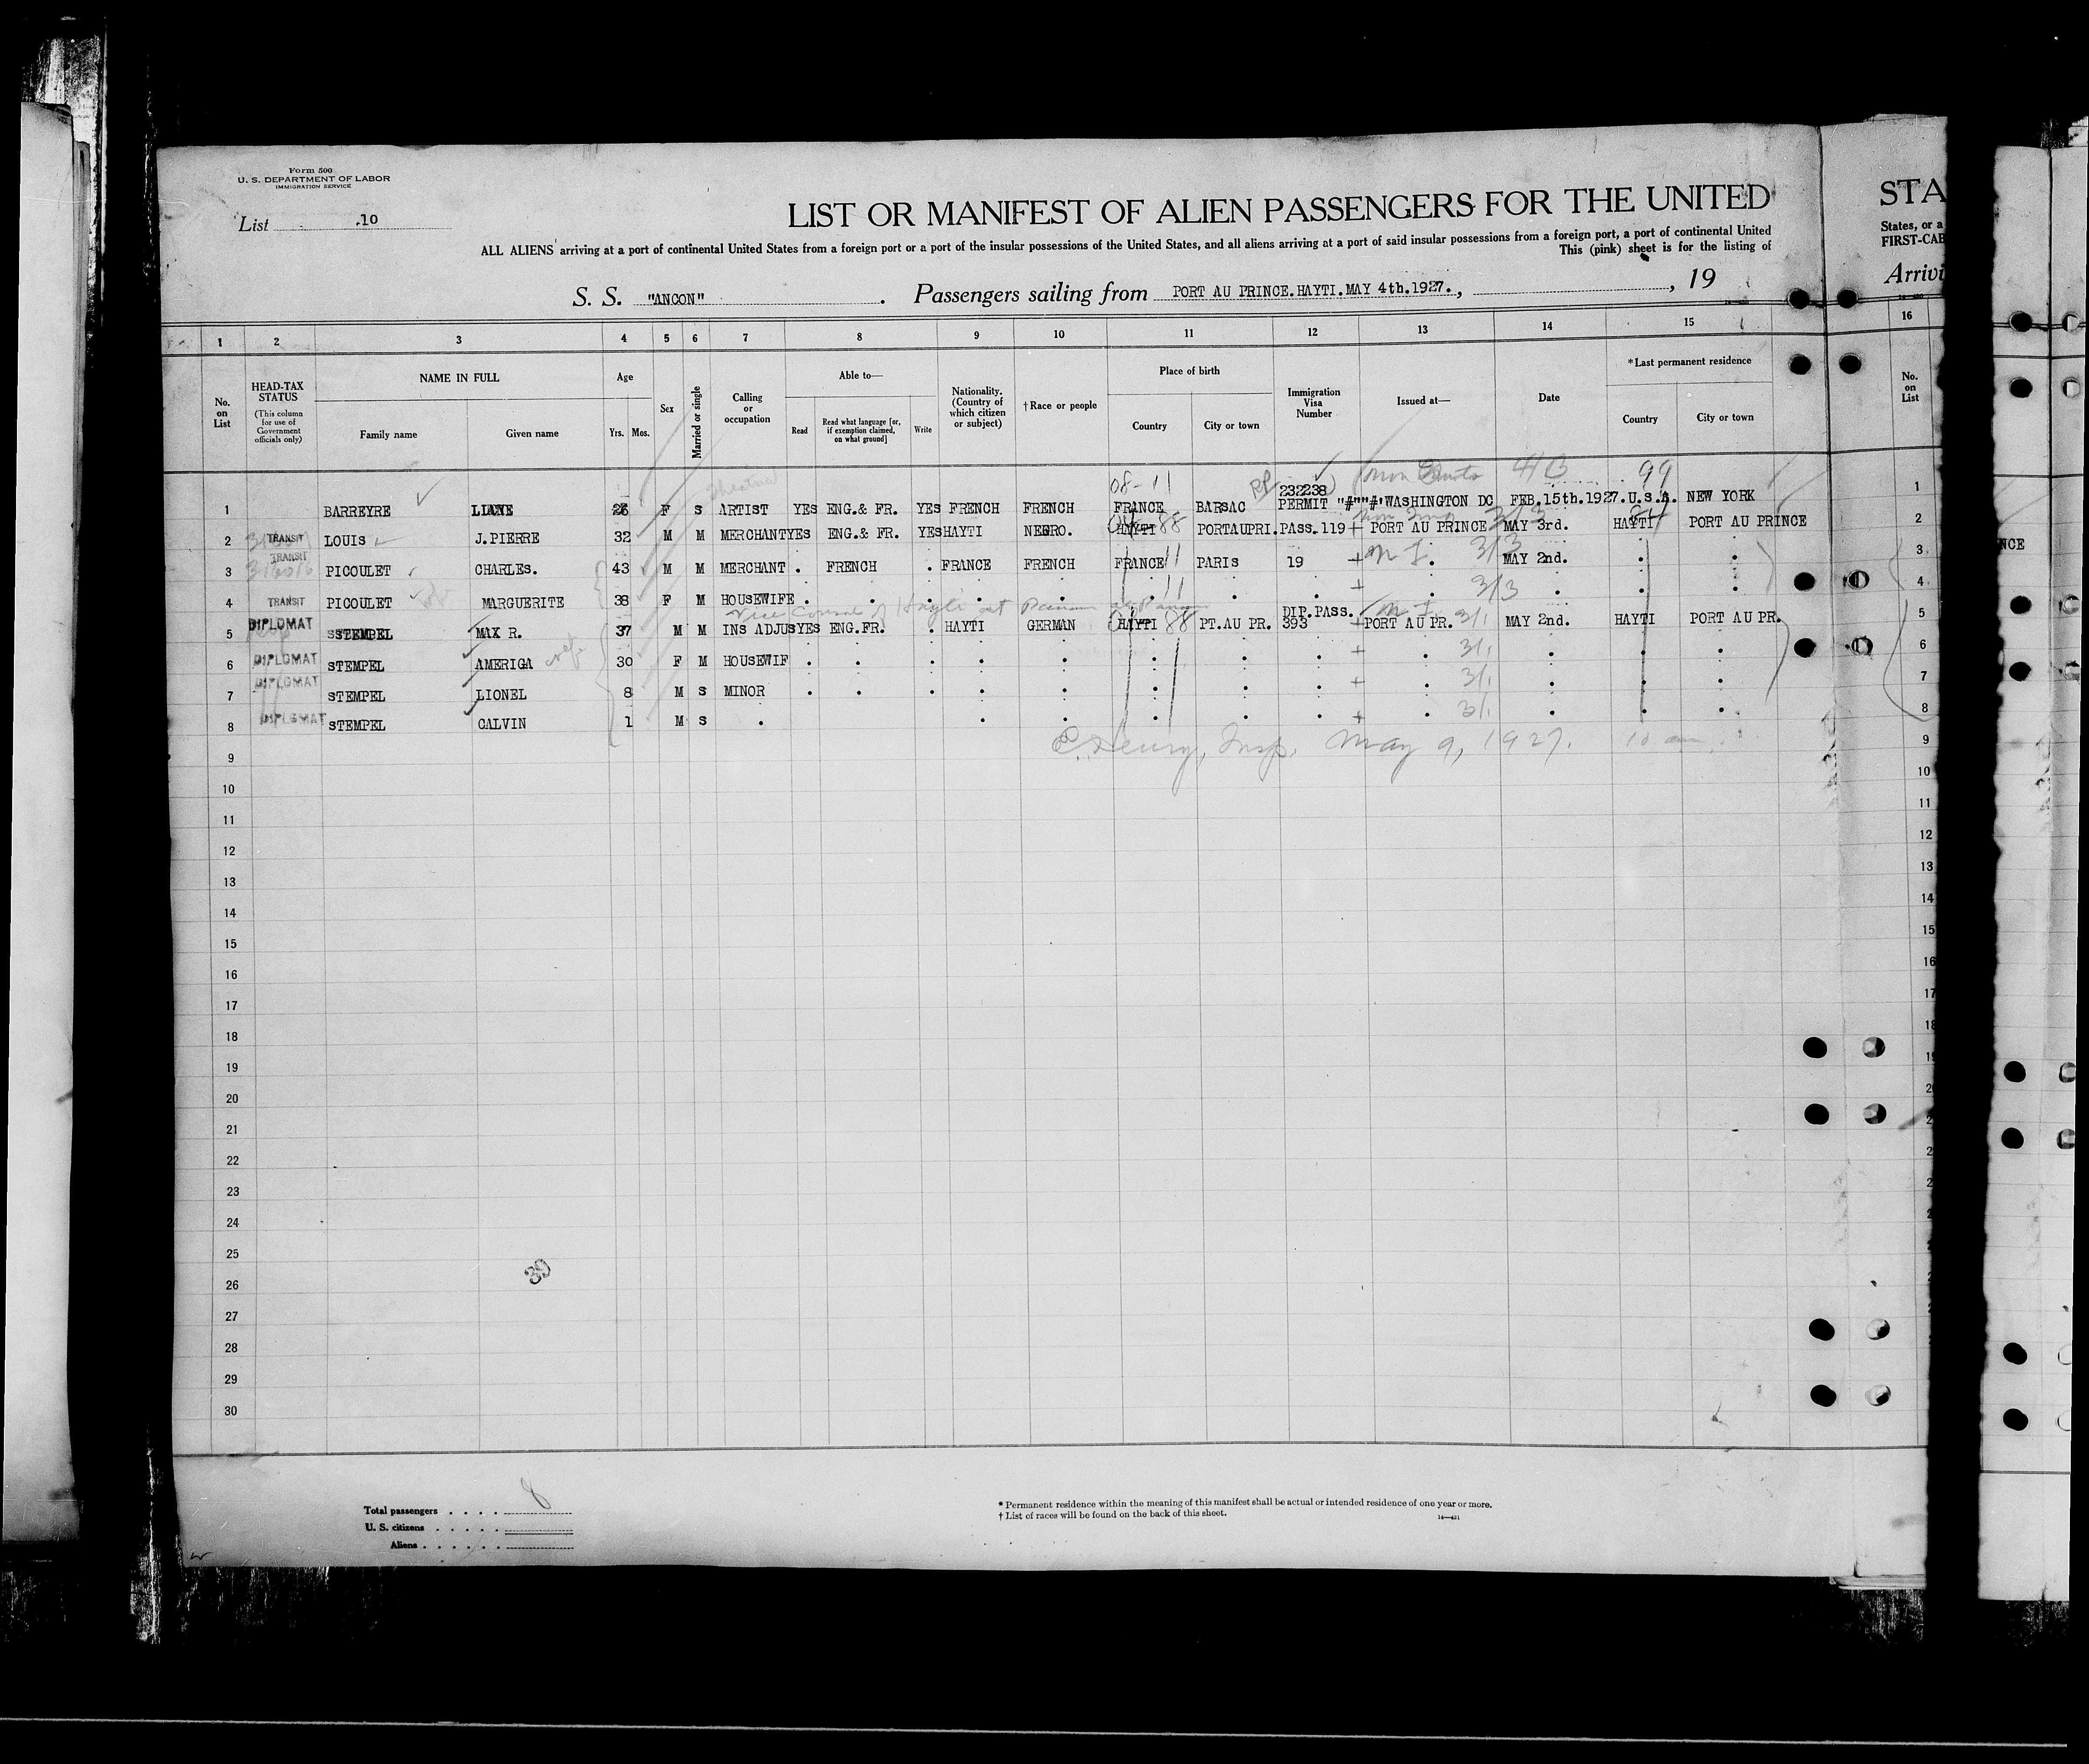 Form 500
U. S. DEPARTMENT OF LABOR
IMMIGRATION SERVICE
List .10
LIST OR MANIFEST OF ALIEN PASSENGERS FOR THE UNITED
STA
ALL ALIENS arriving at a port of continental United States from a foreign port or a port of the insular possessions of the United States, and all aliens arriving at a port of said insular possessions from a foreign port, a port of continental United
States, or a
This (pink) sheet is for the listing of
FIRST-CAB
S. S. "ANCON" . Passengers sailing from PORT AU PRINCE.HAYTI.MAY 4th.1927. , , 19
Arrivi
1 2 3 4 5 6 7 8 9 10 11 12 13 14 15 16
No. on List
HEAD-TAX STATUS (This column for use of Government officials only)
NAME IN FULL
Family name Given name
Age
Yrs. Mos.
Sex
Married or single
Calling or occupation
Able to—
Read Read what language [or, if exemption claimed, on what ground] Write
Nationality. (Country of which citizen or subject)
†Race or people
Place of birth
Country City or town
Immigration Visa Number
Issued at—
Date
*Last permanent residence
Country City or town
No. on List
08-11 4/13 99
1 BARREYRE LIANE 26 F S ARTIST YES ENG.& FR. YES FRENCH FRENCH FRANCE BARSAC 232238 PERMIT "#""#' WASHINGTON DC FEB.15th.1927. U.S.A. NEW YORK 1
2 TRANSIT LOUIS J.PIERRE 32 M M MERCHANT YES ENG.& FR. YES HAYTI NEGRO. HAYTI 88 PORTAUPRI. PASS.119 PORT AU PRINCE MAY 3rd. HAYTI PORT AU PRINCE 2
3 TRANSIT PICOULET CHARLES. 43 M M MERCHANT . FRENCH . FRANCE FRENCH FRANCE 11 PARIS 19 . 3/3 MAY 2nd. . . 3
4 TRANSIT PICOULET MARGUERITE 38 F M HOUSEWIFE . . . . . . 11 . . . 3/3 . . . 4
Vice Consul of Hayti at Panama
5 DIPLOMAT SSTEMPEL MAX R. 37 M M INS ADJUS YES ENG.FR. . HAYTI GERMAN HAYTI 88 PT.AU PR. DIP.PASS. 393 PORT AU PR. 3/1 MAY 2nd. HAYTI PORT AU PR. 5
6 DIPLOMAT STEMPEL AMERIGA 30 F M HOUSEWIF . . . . . . . . . 3/1 . . . 6
7 DIPLOMAT STEMPEL LIONEL 8 M S MINOR . . . . . . . . . 3/1 . . . 7
8 DIPLOMAT STEMPEL CALVIN 1 M S . . . . . . . 3/1 . . . 8
C. Henry, Insp. May 9, 1927. 10 am
9 9
10 10
11 11
12 12
13 13
14 14
15 15
16 16
17 17
18 18
19
20
21
22
23
24
25
26
39
27
28
29
30
Total passengers . . . . 8
U. S. citizens . . . . .
Aliens . . . . . .
* Permanent residence within the meaning of this manifest shall be actual or intended residence of one year or more.
† List of races will be found on the back of this sheet.
NCE